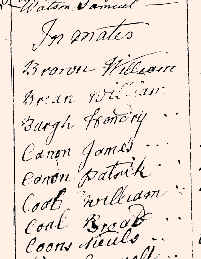 Watson Samuel
Inmates
Brown William
Bream William
Burgh Hendry
Canon James
Canon Patrik
Coal William
Coal
Coons